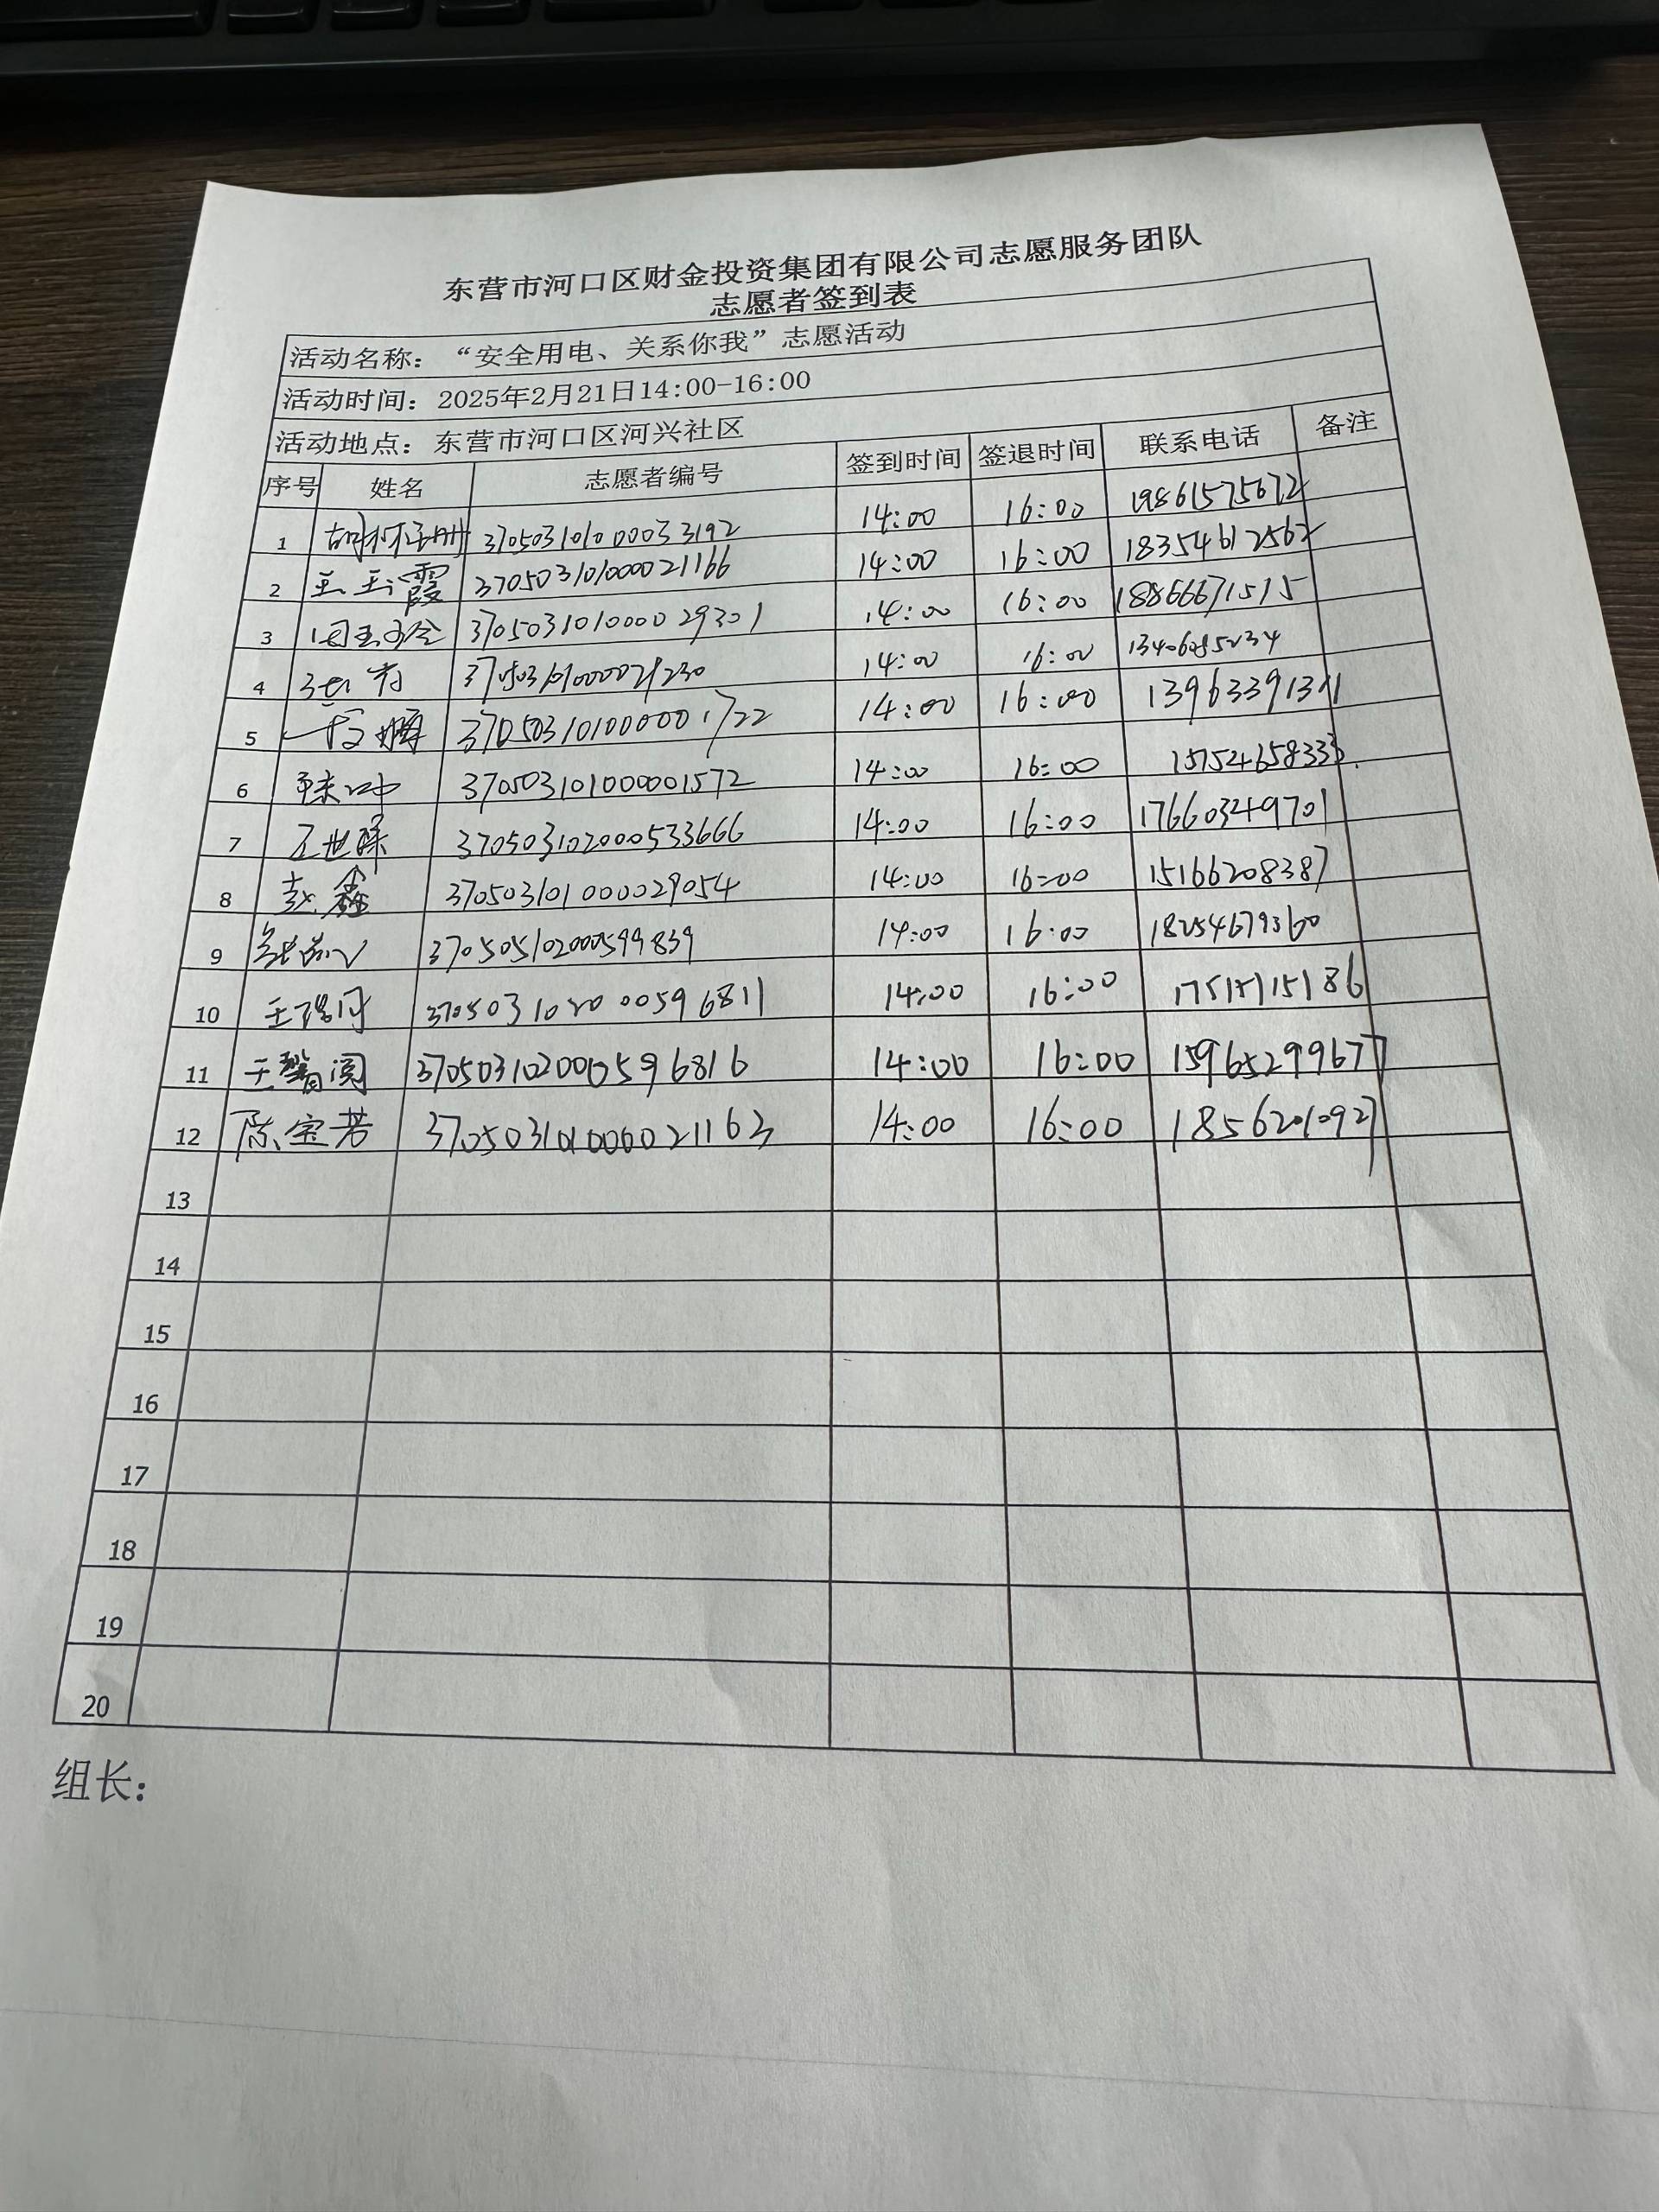 东营市河口区财金投资集团有限公司志愿服务团队
志愿者签到表
活动名称：“安全用电、关系你我”志愿活动
活动时间：2025年2月21日14:00-16:00
活动地点：东营市河口区河兴社区
序号 姓名 志愿者编号 签到时间 签退时间 联系电话 备注
1 370503101000033192 14:00 16:00 19861575672
2 王玉霞 370503101000021166 14:00 16:00 18354612562
3 370503101000029301 14:00 16:00 18866671515
4 14:00 16:00
5 370503101000001722 14:00 16:00
6 370503101000001572 14:00 16:00
7 王世琛 370503102000533666 14:00 16:00 17660349701
8 赵鑫 370503101000029054 14:00 16:00 15166208387
9 370505102000599839 14:00 16:00 18254679360
10 370503102000596811 14:00 16:00
11 王馨阅 370503102000596816 14:00 16:00 15965299677
12 陈宝芳 370503101000021163 14:00 16:00 18562010927
13
14
15
16
17
18
19
20
组长：